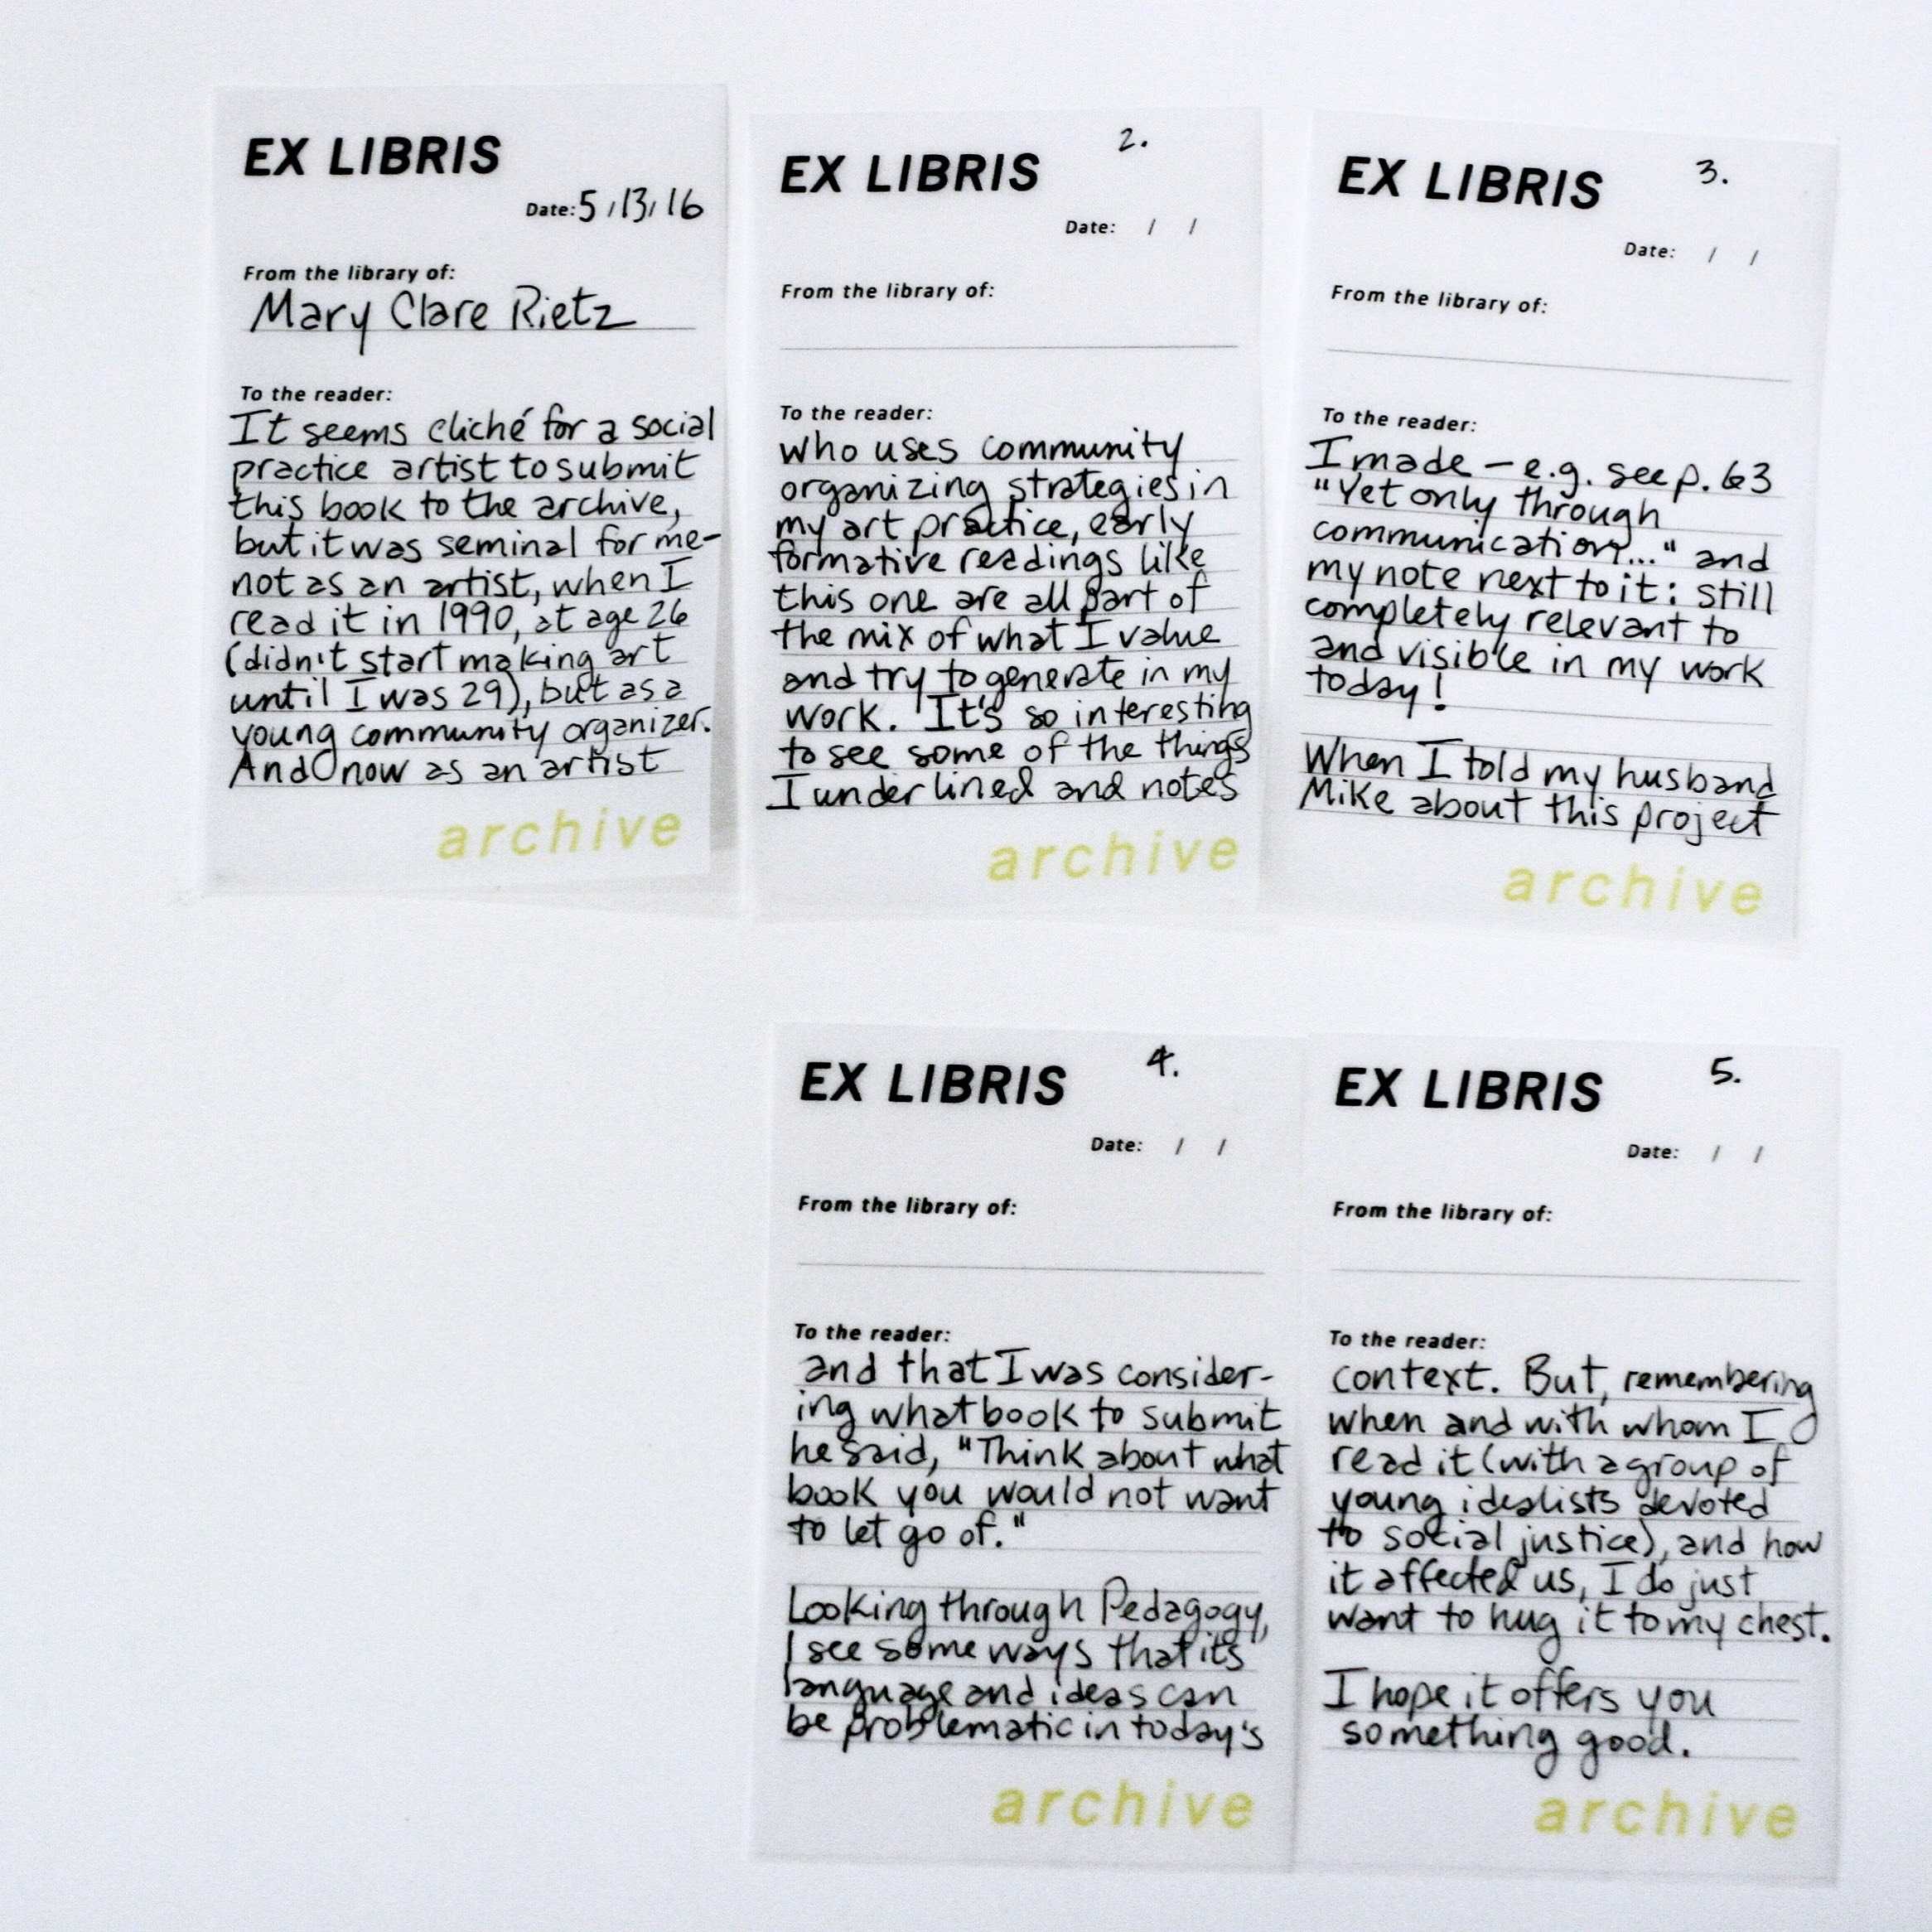 EX LIBRIS
Date: 5/13/16
From the library of:
Mary Clare Rietz
To the reader:
It seems cliché for a social
practice artist to submit
this book to the archive,
but it was seminal for me-
not as an artist, when I
read it in 1990, at age 26
(didn't start making art
until I was 29), but as a
young community organizer.
And now as an artist
archive
EX LIBRIS
2.
Date: / /
From the library of:
To the reader:
who uses community
organizing strategies in
my art practice, early
formative readings like
this one are all part of
the mix of what I value
and try to generate in my
work. It's so interesting
to see some of the things
I underlined and notes
archive
EX LIBRIS
3.
Date: / /
From the library of:
To the reader:
I made - e.g. see p. 63
"Yet only through
communication..." and
my note next to it: still
completely relevant to
and visible in my work
today!
When I told my husband
Mike about this project
archive
EX LIBRIS
4.
Date: / /
From the library of:
To the reader:
and that I was consider-
ing what book to submit
he said, "Think about what
book you would not want
to let go of."
Looking through Pedagogy,
I see some ways that its
language and ideas can
be problematic in today's
archive
EX LIBRIS
5.
Date: / /
From the library of:
To the reader:
context. But, remembering
when and with whom I
read it (with a group of
young idealists devoted
to social justice), and how
it affected us, I do just
want to hug it to my chest.
I hope it offers you
something good.
archive